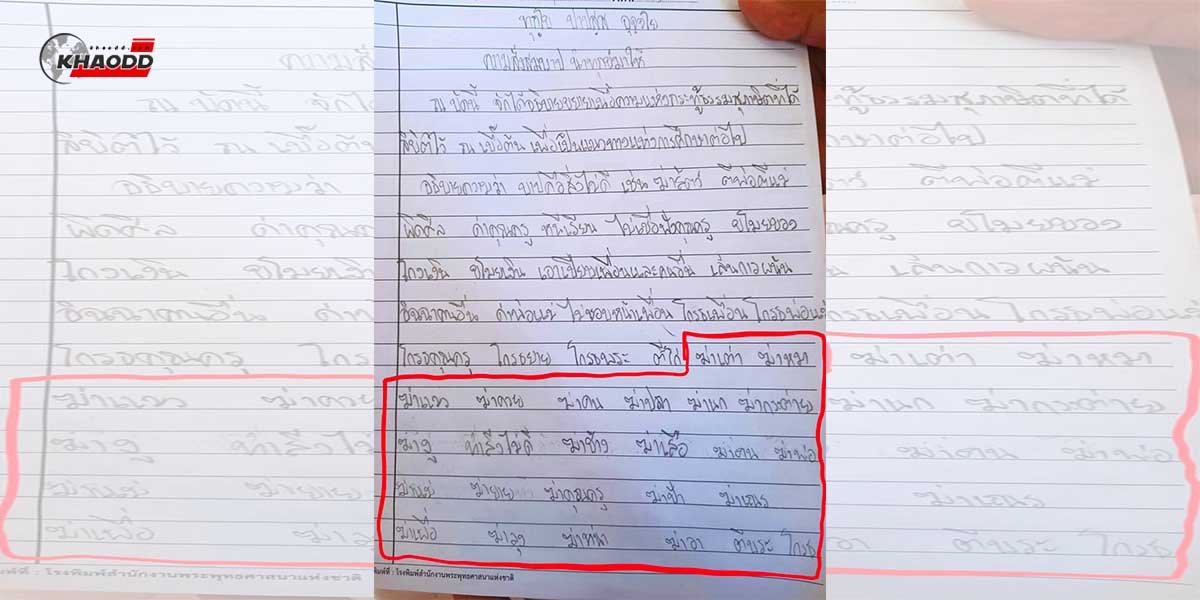 khaodd.com
KHAODD
ทุกฺโข ปาปสฺส อุจฺจโย
ความสั่งสมบาป นำทุกข์มาให้
ณ บัดนี้ จักได้อธิบายขยายเนื้อความแห่งกระทู้ธรรมสุภาษิตที่ได้
ลิขิตไว้ ณ เบื้องต้น เพื่อเป็นแนวทางแห่งการศึกษาต่อไป
อธิบายความว่า บาปคือสิ่งไม่ดี เช่น ฆ่าสัตว์ ตีพ่อตีแม่
ผิดศีล ด่าคุณครู หนีเรียน ไม่เชื่อฟังคุณครู ขโมยของ
โกงเงิน ขโมยเงิน เอาเปรียบเพื่อนและคนอื่น เล่นการพนัน
อิจฉาคนอื่น ด่าพ่อแม่ ไม่ชอบหน้าเพื่อน โกรธเพื่อน โกรธพ่อแม่
โกรธคุณครู โกรธยาย โกรธพระ ตีไก่ ฆ่าเต่า ฆ่าหมา
ฆ่าแมว ฆ่าควาย ฆ่าคน ฆ่าปลา ฆ่านก ฆ่ากระต่าย
ฆ่างู ทำสิ่งไม่ดี ฆ่าช้าง ฆ่าเสือ ฆ่าคน ฆ่าพ่อ
ฆ่าแม่ ฆ่ายาย ฆ่าคุณครู ฆ่าป้า ฆ่าเณร
ฆ่าเพื่อ ฆ่าลุง ฆ่าหน้า ฆ่าอา ตีพระ โกรธ
พิมพ์ที่ : โรงพิมพ์สำนักงานพระพุทธศาสนาแห่งชาติ